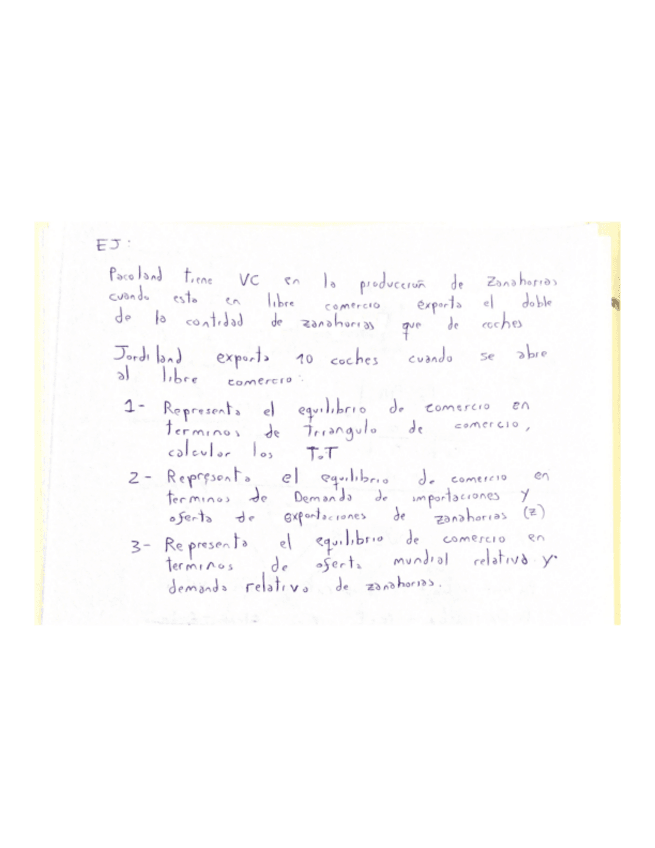 EJ:
Pacoland tiene VC en la producción de Zanahorias
cuando esta en libre comercio exporta el doble
de la cantidad de zanahorias que de coches
Jordiland exporta 10 coches cuando se abre
al libre comercio:
1- Representa el equilibrio de comercio en
terminos de Triangulo de comercio,
calcular los T.T
2- Representa el equilibrio de comercio en
terminos de Demanda de importaciones y
oferta de exportaciones de zanahorias (z)
3- Representa el equilibrio de comercio en
terminos de oferta mundial relativa y
demanda relativa de zanahorias.